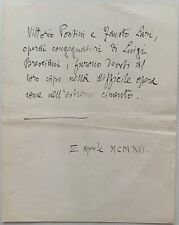 Vittorio Pontini e Fausto Lesi,
operai congegnatori di Luigi
Bresciani, furono devoti al
loro capo nella difficile opera
come nell'estremo cimento.
II aprile MCMXVI.